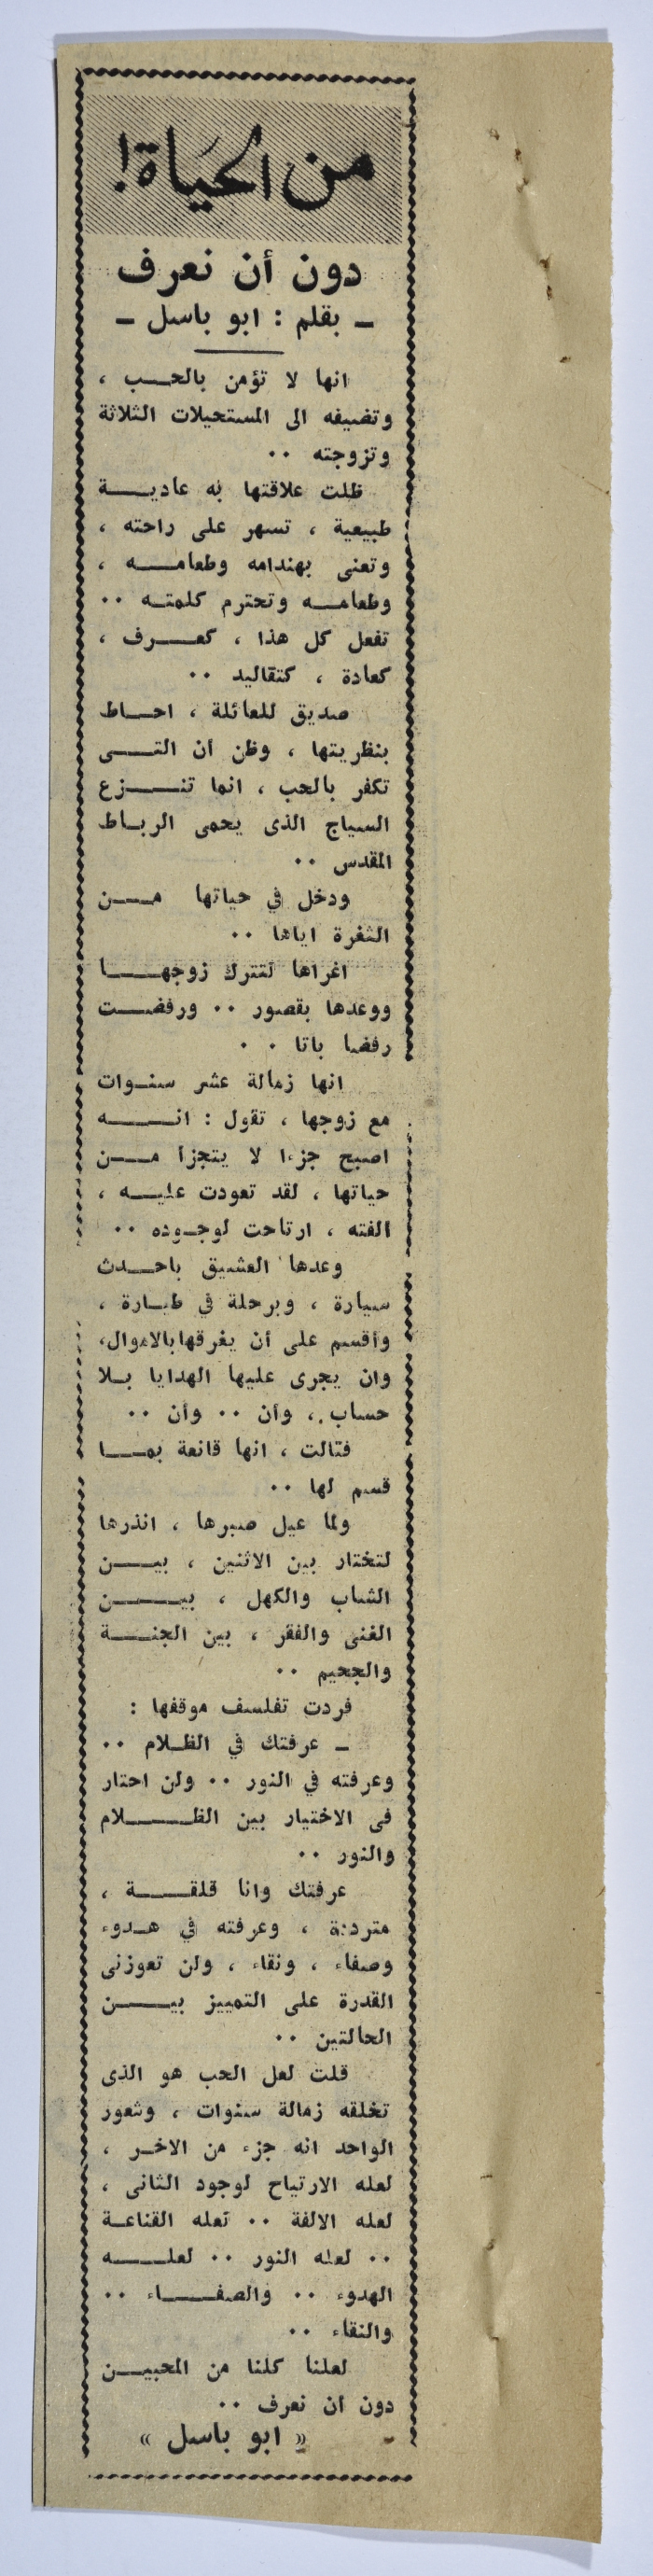 من الحَيَاة!
دون أن نعرف
ـ بقلم : ابو باسل ـ
انها لا تؤمن بالحب ،
وتضيفه الى المستحيلات الثلاثة
وتزوجته ..
ظلت علاقتها به عادية
طبيعية ، تسهر على راحته ،
وتعنى بهندامه وطعامه ،
وطعامه وتحترم كلمته ..
تفعل كل هذا ، كعرف ،
كعادة ، كتقاليد ..
صديق للعائلة ، احاط
بنظريتها ، وظن ان التى
تكفر بالحب ، انما تنزع
السياج الذى يحمى الرباط
المقدس ..
ودخل في حياتها من
الثغرة اياها ..
اغراها لتترك زوجها
ووعدها بقصور .. ورفضت
رفضا باتا . .
انها زمالة عشر سنوات
مع زوجها ، تقول : انه
اصبح جزءا لا يتجزأ من
حياتها ، لقد تعودت عليه ،
الفته ، ارتاحت لوجوده ..
وعدها العشيق باحدث
سيارة ، وبرحلة في طيارة ،
وأقسم على أن يغرقها بالاموال،
وان يجرى عليها الهدايا بلا
حساب ، وأن .. وأن ..
فقالت ، انها قانعة بما
قسم لها ..
ولما عيل صبرها ، انذرها
لتختار بين الاثنين ، بين
الشاب والكهل ، بين
الغنى والفقر ، بين الجنة
والجحيم ..
فردت تفلسف موقفها :
ـ عرفتك في الظلام ..
وعرفته في النور .. ولن احتار
فى الاختيار بين الظلام
والنور ..
عرفتك وانا قلقة ،
مترددة ، وعرفته في هدوء
وصفاء ، ونقاء ، ولن تعوزنى
القدرة على التمييز بين
الحالتين ..
قلت لعل الحب هو الذى
تخلقه زمالة سنوات ، وشعور
الواحد انه جزء من الاخر ،
لعله الارتياح لوجود الثانى ،
لعله الالفة .. لعله القناعة
.. لعله النور .. لعله
الهدوء .. والصفاء ..
والنقاء ..
لعلنا كلنا من المحبين
دون ان نعرف ..
« ابو باسل »